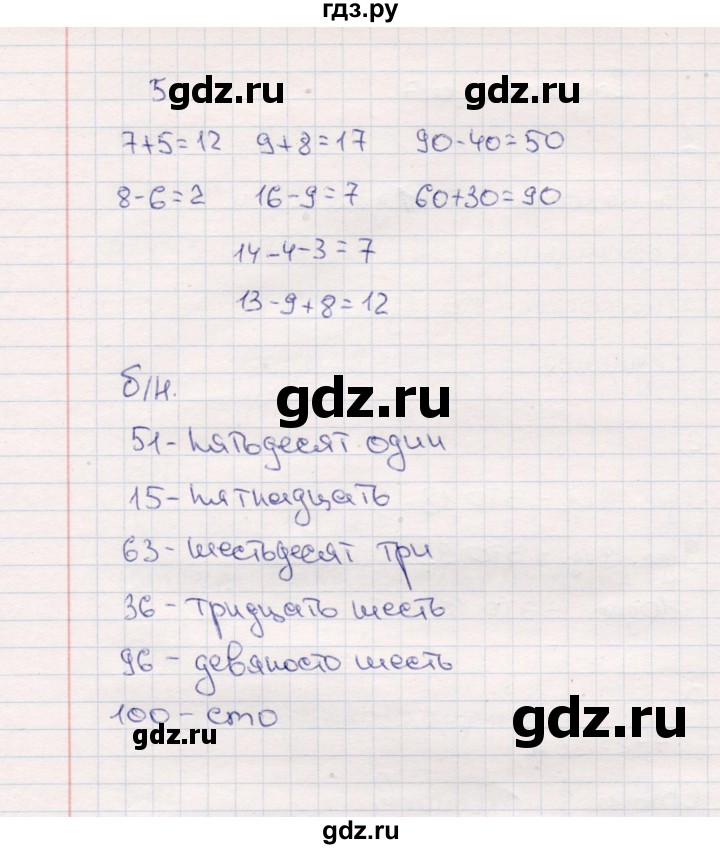 гдз.ру
5 gdz.ru gdz.ru
7+5=12 9+8=17 90-40=50
8-6=2 16-9=7 60+30=90
14-4-3=7
13-9+8=12
б/н. gdz.ru
51-пятьдесят один
15-пятнадцать
63-шестьдесят три
36-тридцать шесть
96-девяносто шесть
100-сто gdz.ru
gdz.ru
gdz.ru